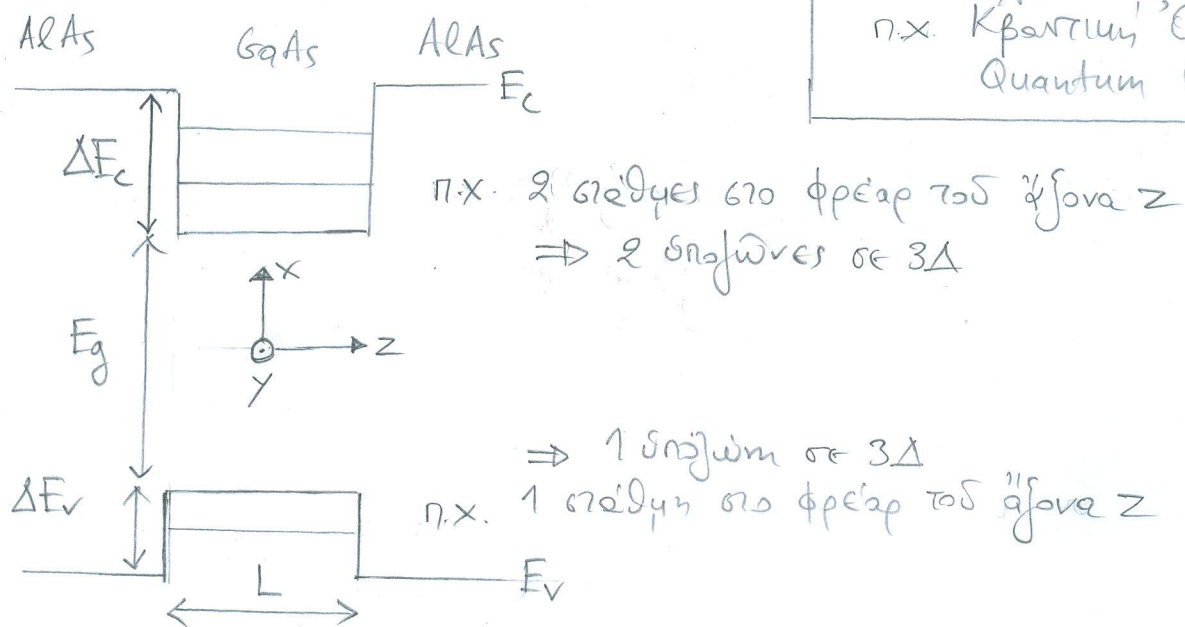 AlAs GaAs AlAs
π.χ. Κβαντική
Quantum
E_c
ΔE_c
π.χ. 2 στάθμες στο φρέαρ τοῦ ἄξονα z
⇒ 2 ὑποζῶνες σε 3Δ
x
E_g
z
y
⇒ 1 ὑποζώνη σε 3Δ
ΔE_v
π.χ. 1 στάθμη στο φρέαρ τοῦ ἄξονα z
L
E_v